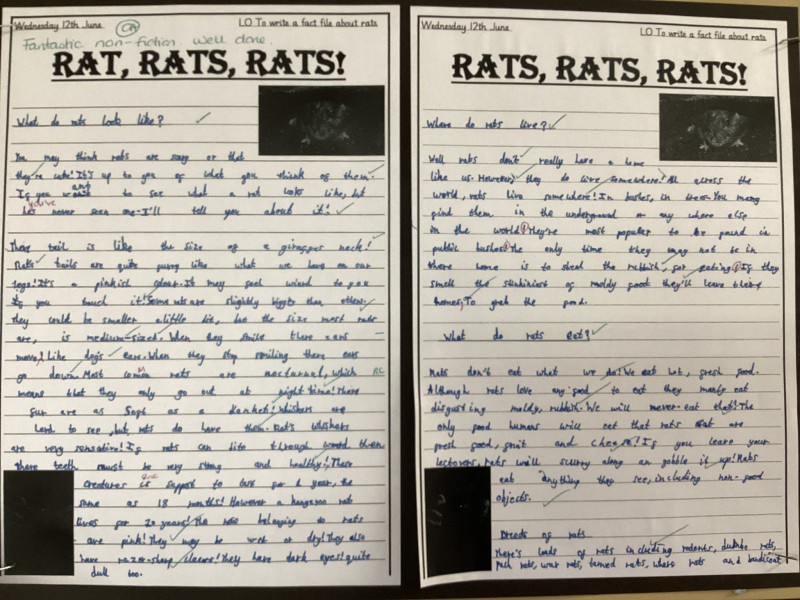 Wednesday 12th June
LO To write a fact file about rats
Fantastic non-fiction well done.
RAT, RATS, RATS!
What do rats look like?
You may think rats are scary or that
they're cute! It's up to you of what you think of them.
If you want to see what a rat looks like, but
you've never seen one - I'll tell you about it!
There tail is like the size of a giraffes neck!
Rats tails are quite furry like what we have on our
legs! It's a pinkish colour. It may feel wierd to you
if you touch it! Some rats are slightly bigger than others
they could be smaller a little bit, but the size most rats
are, is medium-sized. When they smile there ears
move! Like dogs ears. When they stop smiling there ears
go down. Most common rats are nocturnal, which
means that they only go out at night time! There
fur are as soft as a blanket! Whiskers are
hard to see, but rats do have them. Rat's whiskers
are very sensative! If rats can bite through wood then
there teeth must be very strong and healthy! These
creatures is suppost to last for 1 year, the
same as 18 months! However a kangaroo rat
lives for 10 years! The nose belonging to rats
are pink! They may be wet or dry! They also
have razor-sharp claws! They have dark eyes! quite
dull too.
Wednesday 12th June
LO To write a fact file about rats
RATS, RATS, RATS!
Where do rats live?
Well rats don't really have a home
like us. However, they do live somewhere! All across the
world, rats live somewhere! In bushes, in trees. You mang
find them in the underground or any where else
in the world! They're most populer to be found in
public bushes! The only time they may not be in
there home is to steal the rubbish, for eating! If they
smell the stinkiest of moldy food they'll leave their
homes, To grab the food.
What do rats eat?
Rats don't eat what we do! We eat hot, fresh food.
Although rats love any food to eat they mostly eat
disgusting moldy, rubbish. We will never eat that! The
only food humans will eat that rats eat are
fresh food, fruit and cheese! If you leave your
leftovers, rats will scurry along an gobble it up! Rats
eat anything they see, including non-food
objects.
Breeds of rats
There's loads of rats including rodents, dumbo rats,
pack rats, wood rats, tamed rats, where rats and